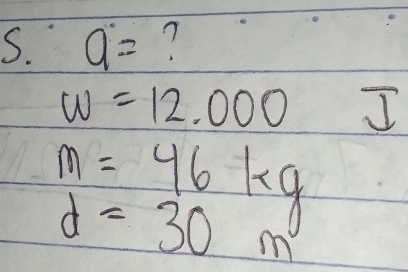 S. a = ?
W = 12.000 J
m = 46 kg
d = 30 m